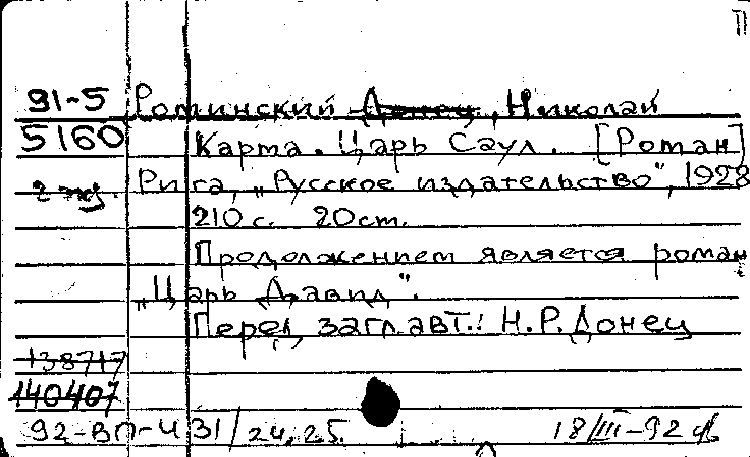 91-5 Роминский Донец, Николай
5160 Карта. Царь Саул. [Роман]
2 экз. Рига, „Русское издательство", 1928
210 с. 20 cm.
Продолжением является роман
„Царь Давид".
Перед загл. авт.: Н.Р. Донец
138717
140407
92-ВП-Ч 31/24,25. 18/III-92